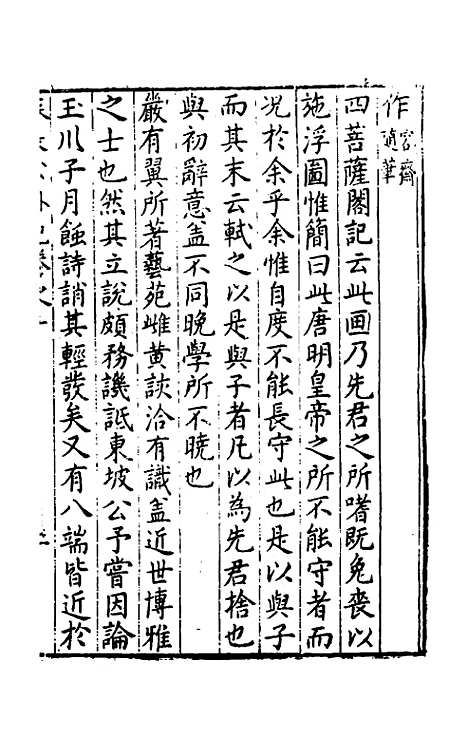 作 容齋
隨筆
四菩薩閣記云此画乃先君之所嗜既免喪以
施浮圖惟簡曰此唐明皇帝之所不能守者而
况於余乎余惟自度不能長守此也是以與子
而其末云軾之以是與子者凡以為先君捨也
與初辭意盖不同晚學所不曉也
嚴有翼所著藝苑雌黄談洽有識盖近世博雅
之士也然其立說頗務譏詆東坡公予嘗因論
玉川子月蝕詩誚其輕發矣又有八端皆近於
長公外紀卷之十